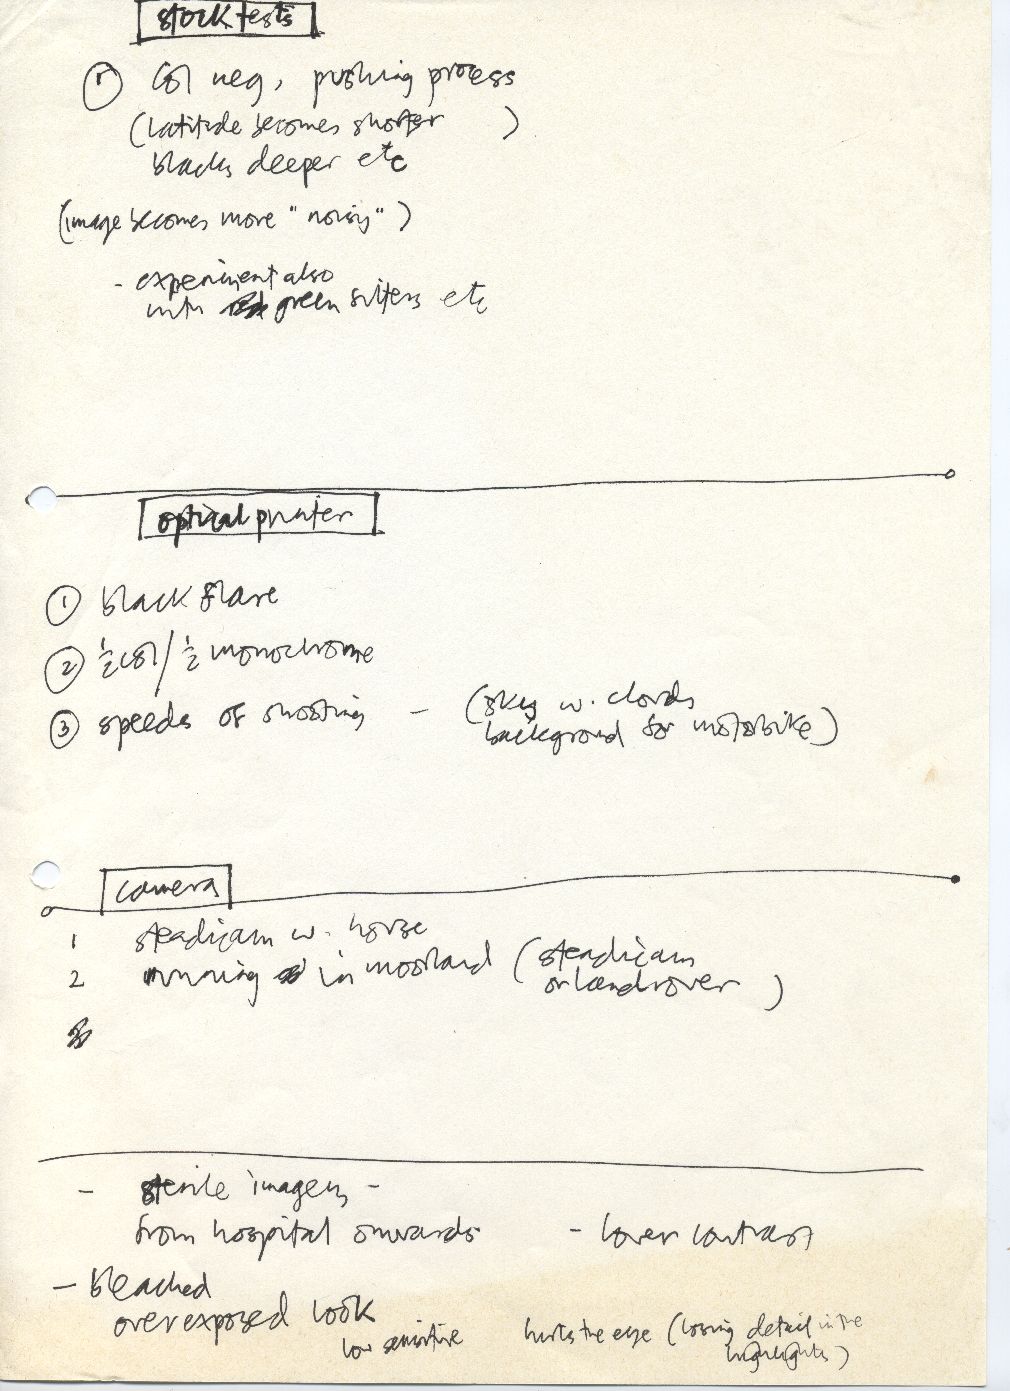 stock tests
① Col neg, pushing process
(latitude becomes shorter )
blacks deeper etc
(image becomes more "noisy")
- experiment also
with green filters etc
optical printer
① black flare
② ½ col / ½ monochrome
③ speeds of shooting - (sky w. clouds
background for motorbike)
camera
1 steadicam w. horse
2 running in moorland (steadicam
or landrover )
- sterile imagery -
from hospital onwards - lower contrast
- bleached
overexposed look
low sensitive hurts the eye (losing detail in the
highlights)